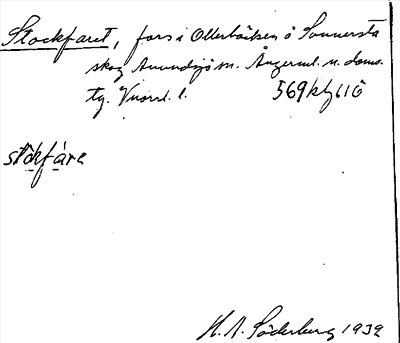 Stockfaret, fors i Otterbäcken å Sunnersta
skog Anundsjö sn. Ångerml. n. doms.
tg. Vnorrl. l. 569kfg110
stökfáre
H. A. Söderberg 1932